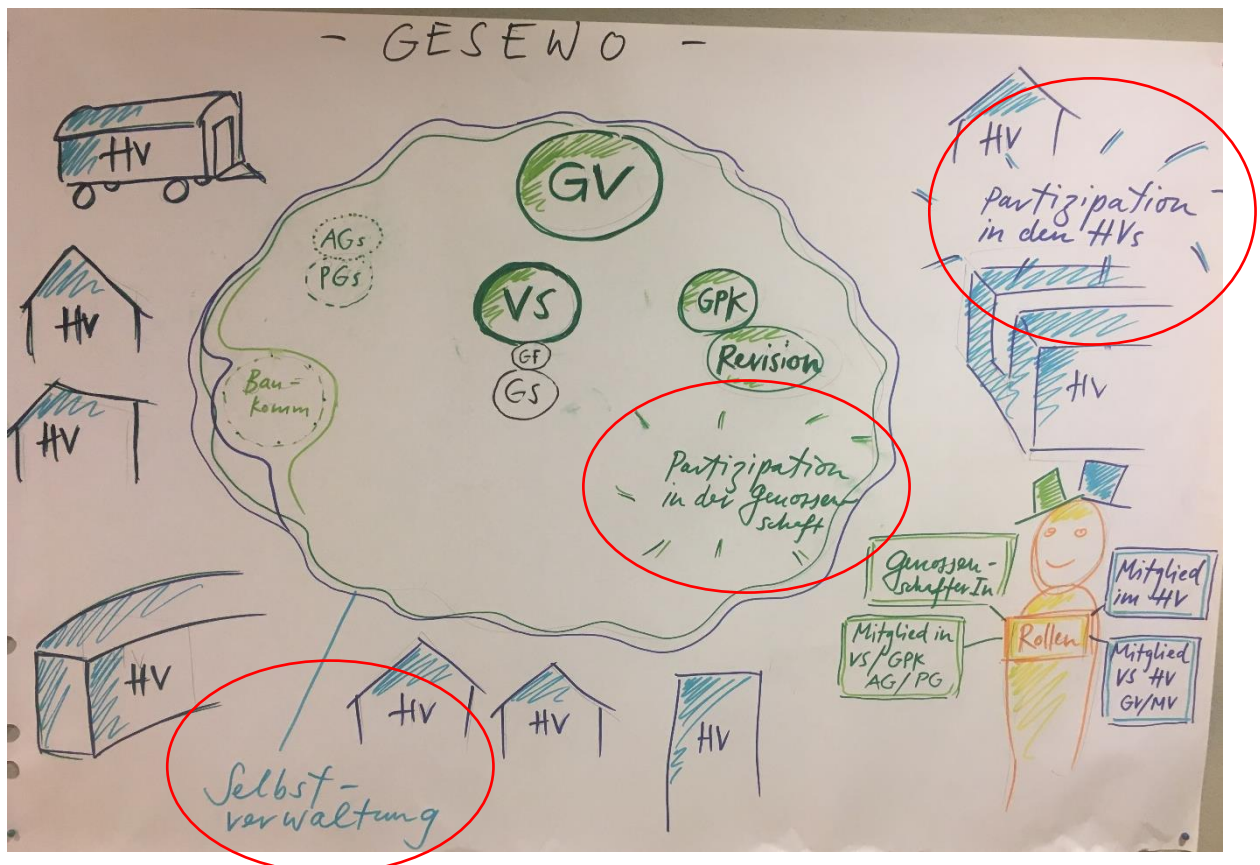 - GESEWO -
HV
HV
HV
HV
GV
AGs
PGs
VS
GF
GS
GPK
Revision
Bau-
komm
Partizipation
in der Genossen-
schaft
HV
Partizipation
in den HVs
HV
Genossen-
schafterIn
Mitglied in
VS/GPK
AG/PG
Rollen
Mitglied
im HV
Mitglied
VS HV
GV/MV
HV
HV
HV
Selbst-
verwaltung